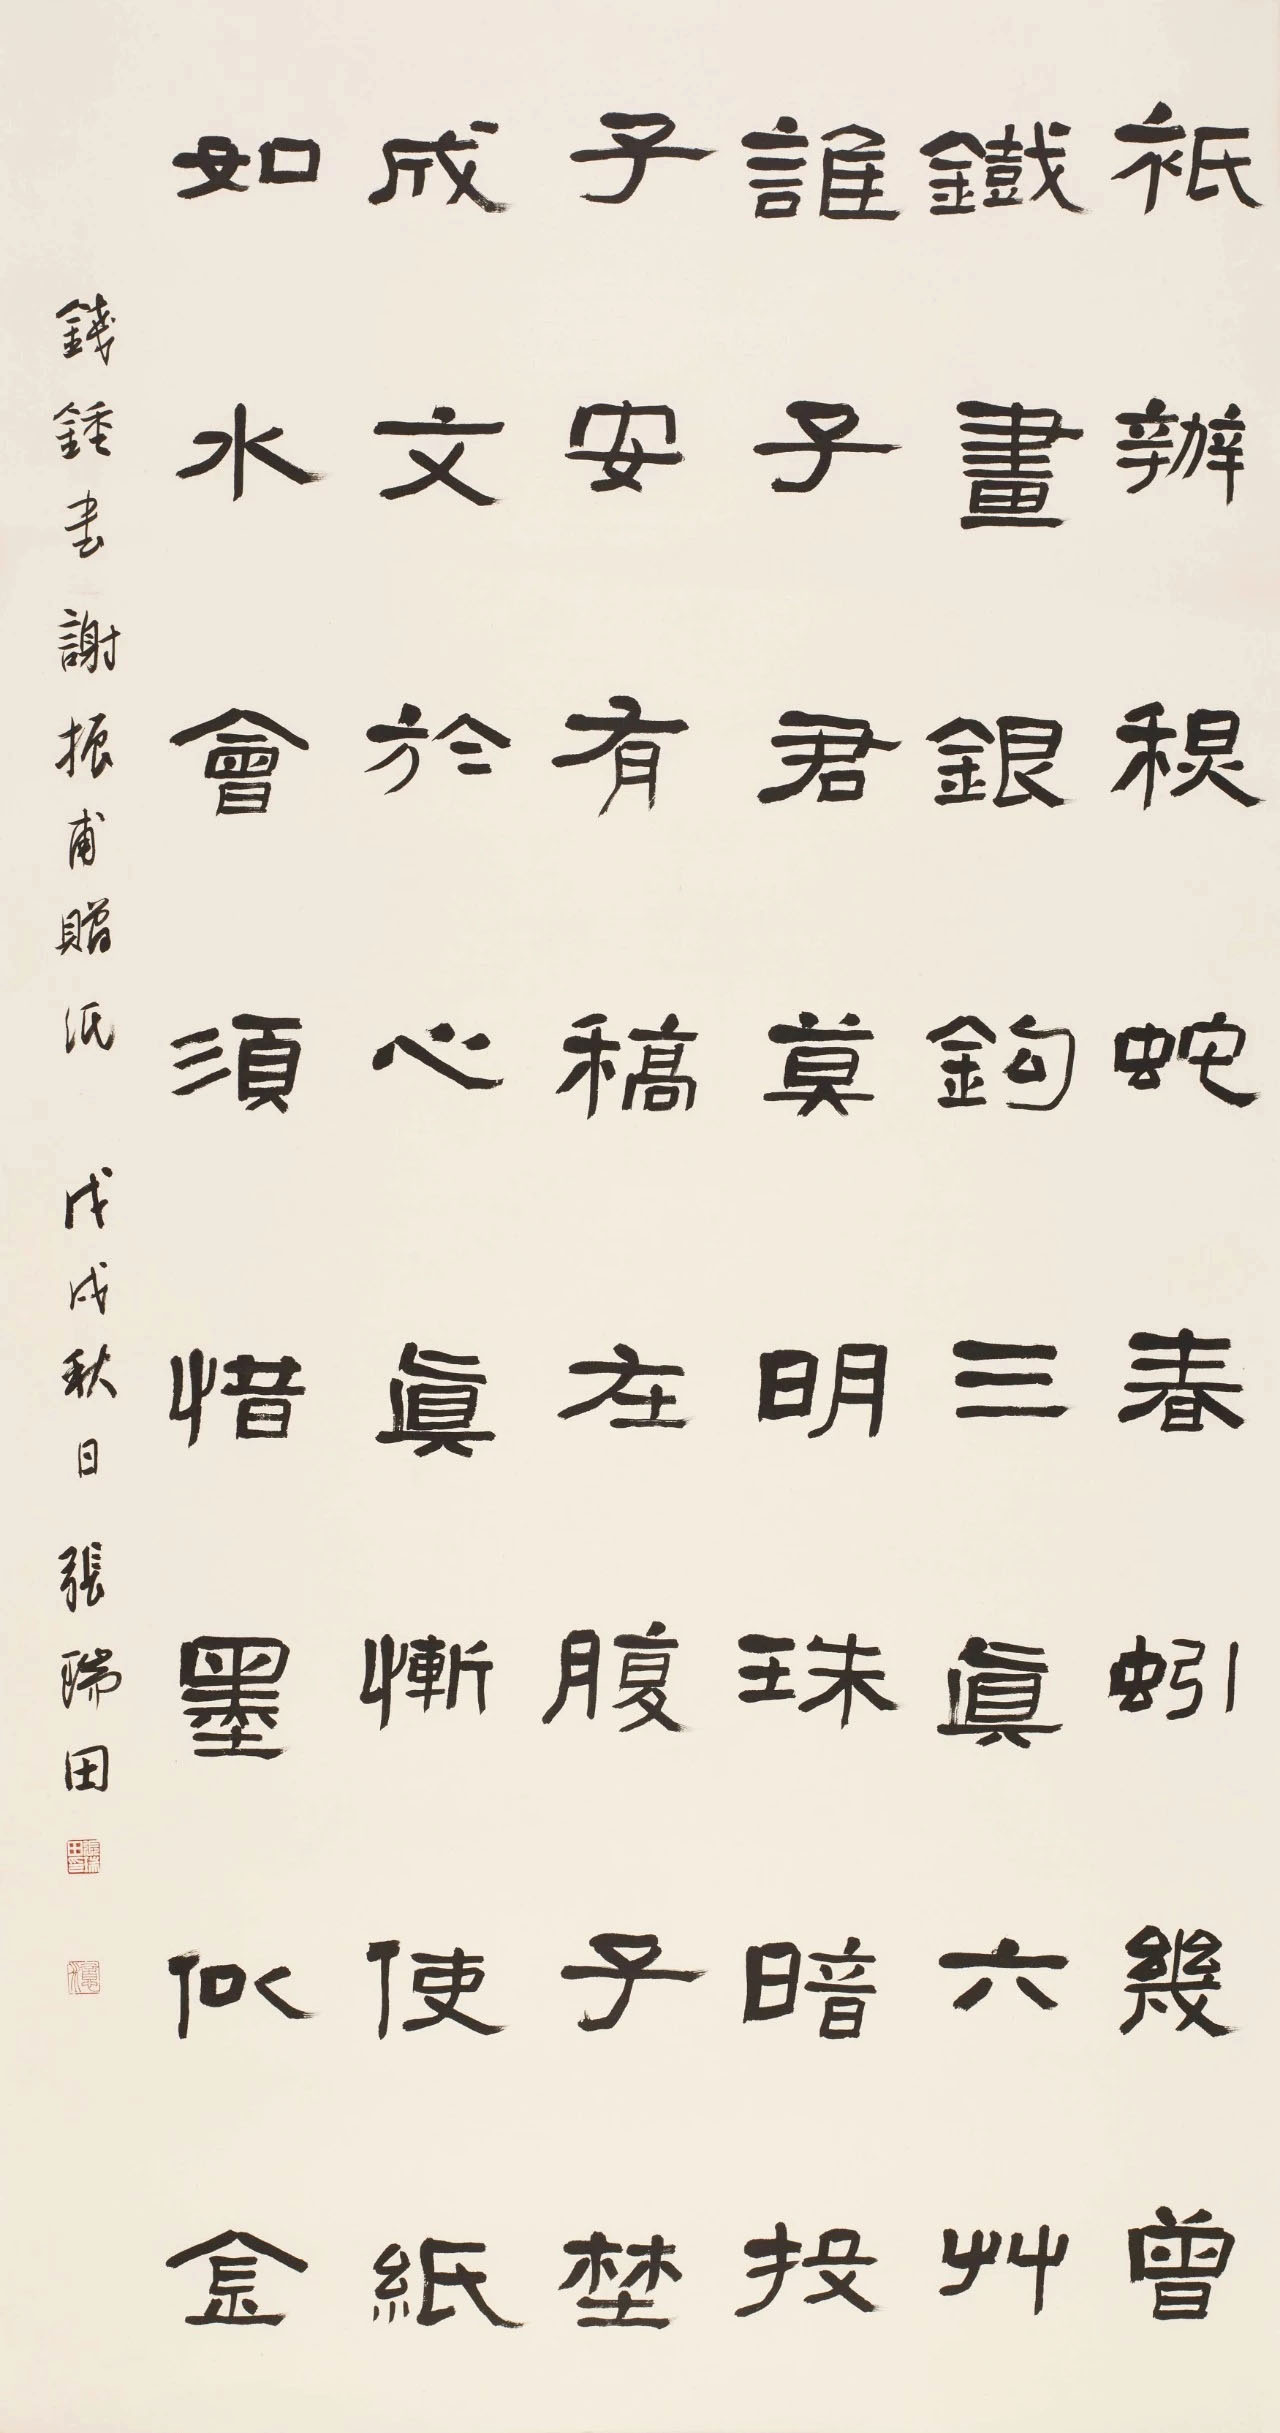 祇辦秋蛇春蚓幾曾
鐵畫銀鉤三眞六艸
誰子君莫明珠暗投
子安有稿在腹子埜
成文於心眞慚使紙
如水會須惜墨似金
錢鍾书謝振甫贈紙 戊戌秋日 張瑞田